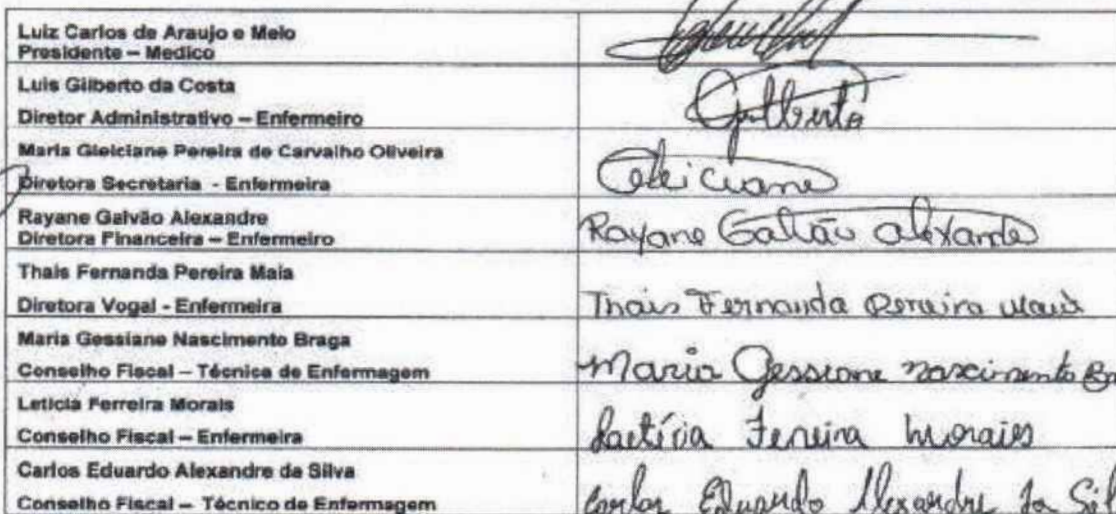 Luiz Carlos de Araujo e Melo
Presidente – Medico
Luis Gilberto da Costa
Diretor Administrativo – Enfermeiro
Gilberto
Maria Gleiciane Pereira de Carvalho Oliveira
Diretora Secretaria - Enfermeira
Gleiciane
Rayane Galvão Alexandre
Diretora Financeira – Enfermeiro
Rayane Galvão Alexandre
Thais Fernanda Pereira Maia
Diretora Vogal - Enfermeira
Thais Fernanda Pereira Maia
Maria Gessiane Nascimento Braga
Conselho Fiscal – Técnica de Enfermagem
Maria Gessiane Nascimento Bra
Leticia Ferreira Morais
Conselho Fiscal – Enfermeira
Laetícia Ferreira Morais
Carlos Eduardo Alexandre da Silva
Conselho Fiscal – Técnico de Enfermagem
Carlos Eduardo Alexandre da Sil